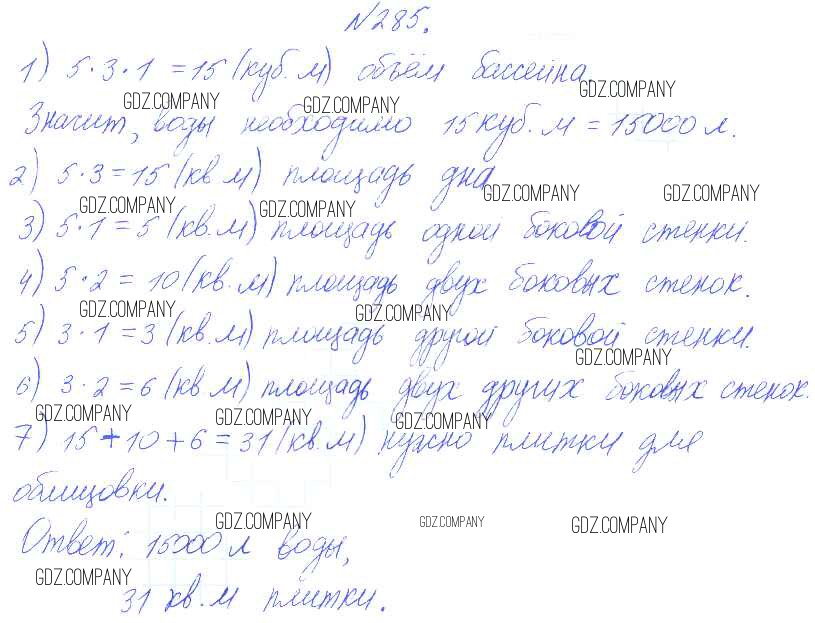 №285.
1) 5·3·1 = 15 (куб. м) объём бассейна.
GDZ.COMPANY GDZ.COMPANY GDZ.COMPANY
Значит, воды необходимо 15 куб. м = 15000 л.
2) 5·3 = 15 (кв м) площадь дна
GDZ.COMPANY GDZ.COMPANY GDZ.COMPANY GDZ.COMPANY
3) 5·1 = 5 (кв. м) площадь одной боковой стенки.
4) 5·2 = 10 (кв. м) площадь двух боковых стенок.
GDZ.COMPANY GDZ.COMPANY
5) 3·1 = 3 (кв. м) площадь другой боковой стенки.
GDZ.COMPANY
6) 3·2 = 6 (кв м) площадь двух других боковых стенок.
GDZ.COMPANY GDZ.COMPANY GDZ.COMPANY
7) 15 + 10 + 6 = 31 (кв. м) нужно плитки для
облицовки.
GDZ.COMPANY GDZ.COMPANY GDZ.COMPANY
Ответ: 15000 л воды,
GDZ.COMPANY
31 кв. м плитки.